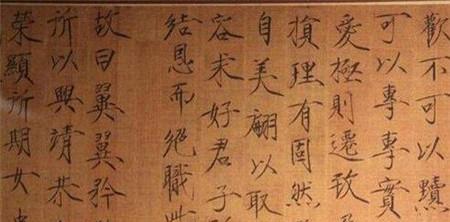 歡不可以黷
可以專專實
愛極則遷致
損理有固然
自美翩以取
容求好君子所
結恩而絕職此
故曰翼翼矜
所以興靖恭
榮顯所期女史